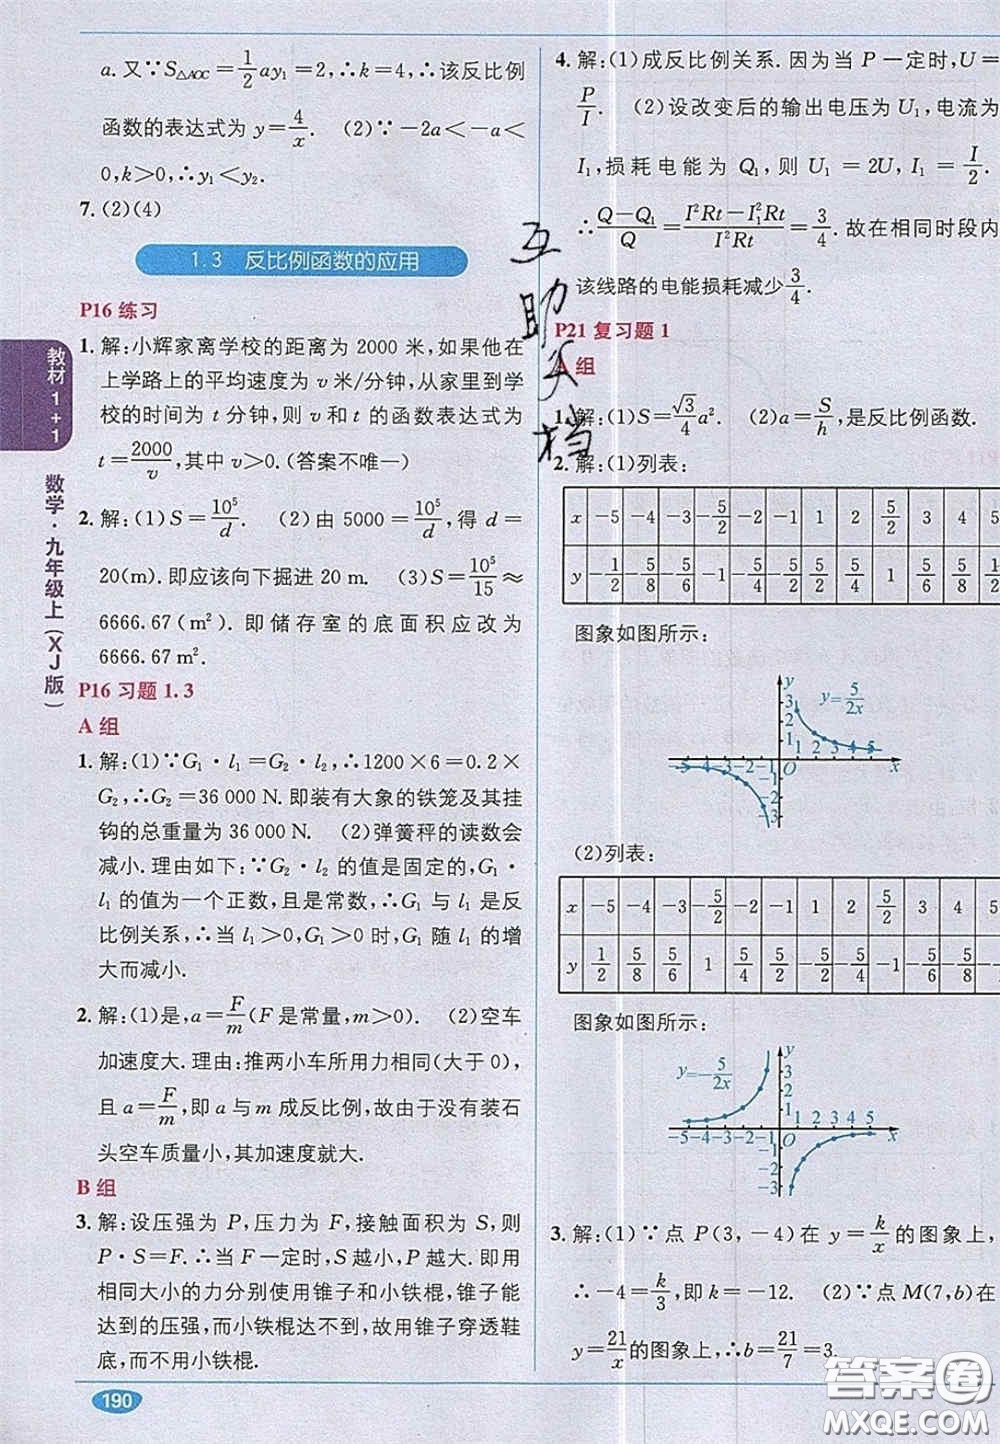 a.又∵S△AOC=1/2ay₁=2,∴k=4,∴该反比例
函数的表达式为y=4/x. (2)∵-2a<-a<
0,k>0,∴y₁<y₂.
7.(2)(4)
1.3 反比例函数的应用
P16 练习
1.解:小辉家离学校的距离为 2000 米,如果他在
上学路上的平均速度为 v 米/分钟,从家里到学
校的时间为 t 分钟,则 v 和 t 的函数表达式为
t=2000/v,其中 v>0.(答案不唯一)
2.解:(1)S=10⁵/d. (2)由 5000=10⁵/d,得 d=
20(m).即应该向下掘进 20 m. (3)S=10⁵/15≈
6666.67(m²).即储存室的底面积应改为
6666.67 m².
P16 习题 1.3
A 组
1.解:(1)∵G₁·l₁=G₂·l₂,∴1200×6=0.2×
G₂,∴G₂=36 000 N.即装有大象的铁笼及其挂
钩的总重量为 36 000 N. (2)弹簧秤的读数会
减小.理由如下:∵G₂·l₂的值是固定的,G₁·
l₁的值为一个正数,且是常数,∴G₁与l₁是反
比例关系,∴当 l₁>0,G₁>0 时,G₁随 l₁的增
大而减小.
2.解:(1)是,a=F/m(F 是常量,m>0). (2)空车
加速度大.理由:推两小车所用力相同(大于 0),
且 a=F/m,即 a 与 m 成反比例,故由于没有装石
头空车质量小,其加速度就大.
B 组
3.解:设压强为 P,压力为 F,接触面积为 S,则
P·S=F.∴当 F 一定时,S 越小,P 越大.即用
相同大小的力分别使用锥子和小铁棍,锥子能
达到的压强,而小铁棍达不到,故用锥子穿透鞋
底,而不用小铁棍.
190
教材1+1
数学·九年级上(XJ版)
4.解:(1)成反比例关系.因为当 P 一定时,U=
P/I. (2)设改变后的输出电压为 U₁,电流为
I₁,损耗电能为 Q₁,则 U₁=2U,I₁=I/2.
∴(Q-Q₁)/Q=(I²Rt-I₁²Rt)/(I²Rt)=3/4.故在相同时段内
该线路的电能损耗减少3/4.
P21 复习题 1
A 组
1.解:(1)S=√3/4a². (2)a=S/h,是反比例函数.
2.解:(1)列表:
x -5 -4 -3 -5/2 -2 -1 1 2 5/2 3 4
y -1/2 -5/8 -5/6 -1 -5/4 -5/2 5/2 5/4 1 5/6 5/8
图象如图所示:
y=5/2x
y
3
2
1
-5 -4 -3 -2 -1 O 1 2 3 4 5 x
-1
-2
-3
(2)列表:
x -5 -4 -3 -5/2 -2 -1 1 2 5/2 3 4
y 1/2 5/8 5/6 1 5/4 5/2 -5/2 -5/4 -1 -5/6 -5/8
图象如图所示:
y=-5/2x
y
3
2
1
-5-4-3-2-1 O 1 2 3 4 5 x
-1
-2
-3
3.解:(1)∵点 P(3,-4)在 y=k/x的图象上,
∴-4=k/3,即 k=-12. (2)∵点 M(7,b)在
y=21/x的图象上,∴b=21/7=3.
互助文档
答案圈
MXQE.COM